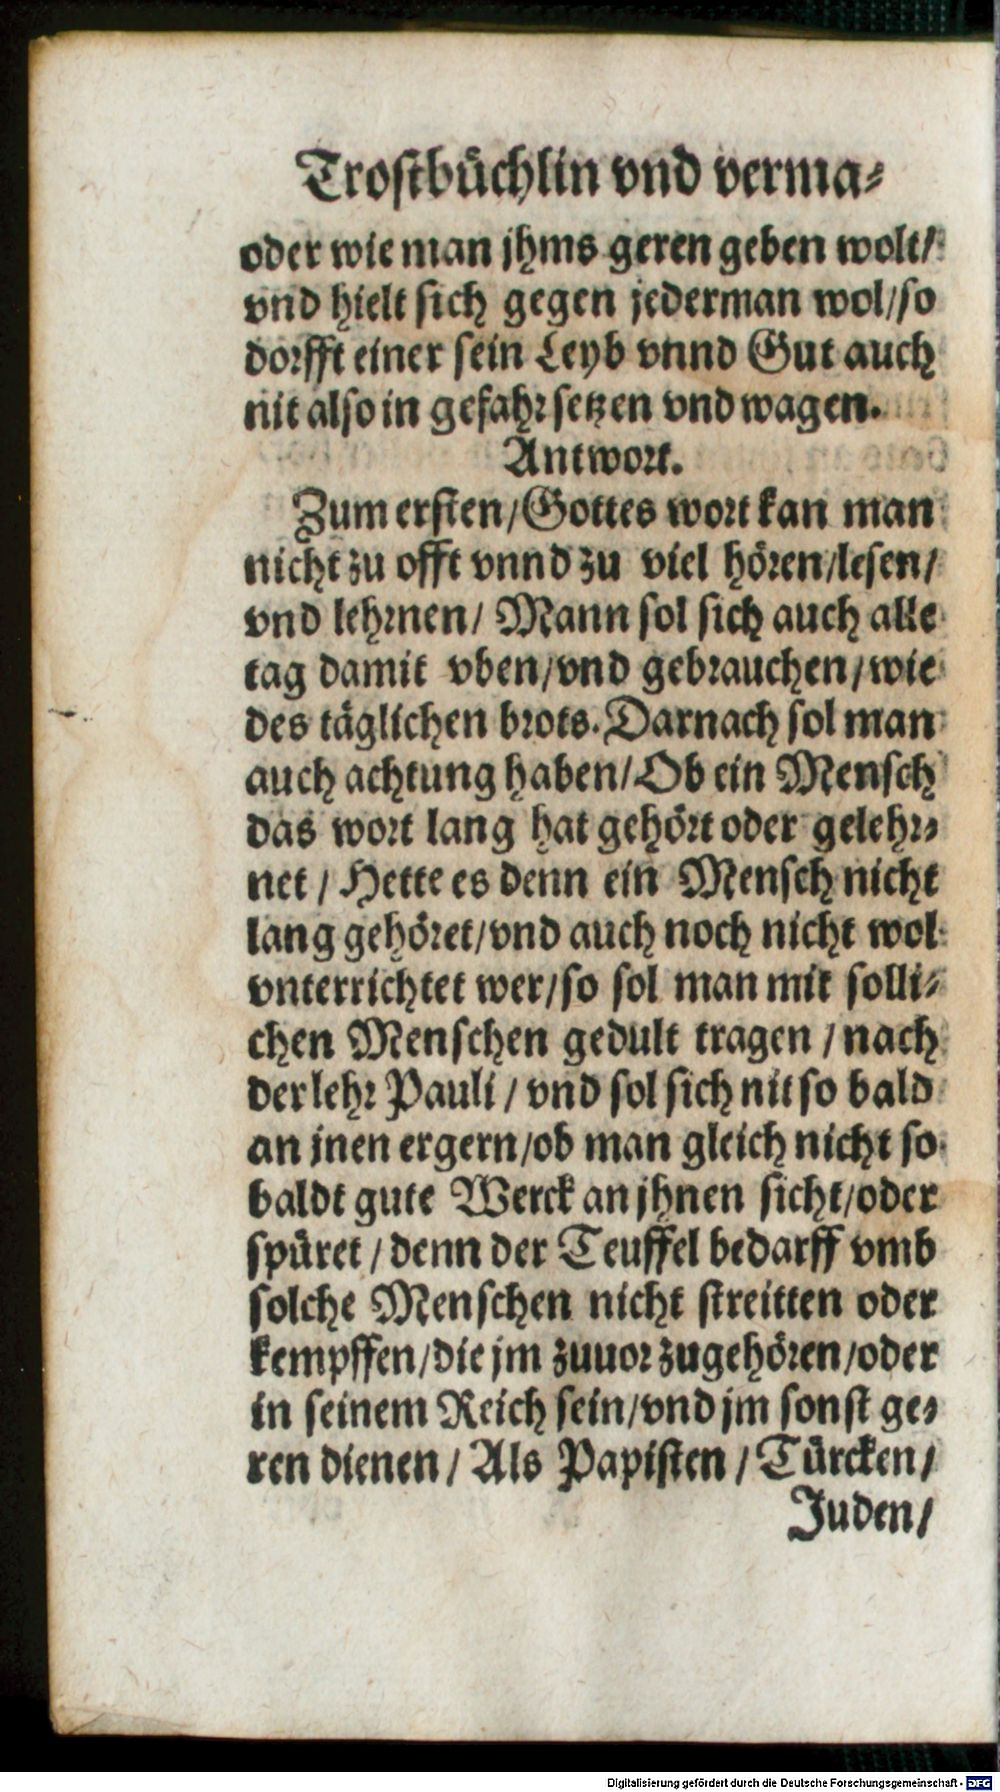 Trostbüchlin vnd verma⸗
oder wie man jhms geren geben wolt/
vnd hielt sich gegen jederman wol/so
dorfft einer sein Leyb vnnd Gut auch
nit also in gefahr setzen vnd wagen.
Antwort.
Zum ersten/Gottes wort kan man
nicht zu offt vnnd zu viel hören/lesen/
vnd lehrnen/ Mann sol sich auch alle
tag damit vben/vnd gebrauchen/wie
des täglichen brots. Darnach sol man
auch achtung haben/Ob ein Mensch
das wort lang hat gehört oder gelehr⸗
net / Hette es denn ein Mensch nicht
lang gehöret/vnd auch noch nicht wol
vnterrichtet wer/so sol man mit solli⸗
chen Menschen gedult tragen / nach
der lehr Pauli / vnd sol sich nit so bald
an jnen ergern/ob man gleich nicht so
baldt gute Werck an jhnen sicht/oder
spüret / denn der Teuffel bedarff vmb
solche Menschen nicht streitten oder
kempffen/die jm zuuor zugehören/oder
in seinem Reich sein/vnd jm sonst ge⸗
ren dienen / Als Papisten / Türcken/
Juden/
Digitalisierung gefördert durch die Deutsche Forschungsgemeinschaft - DFG